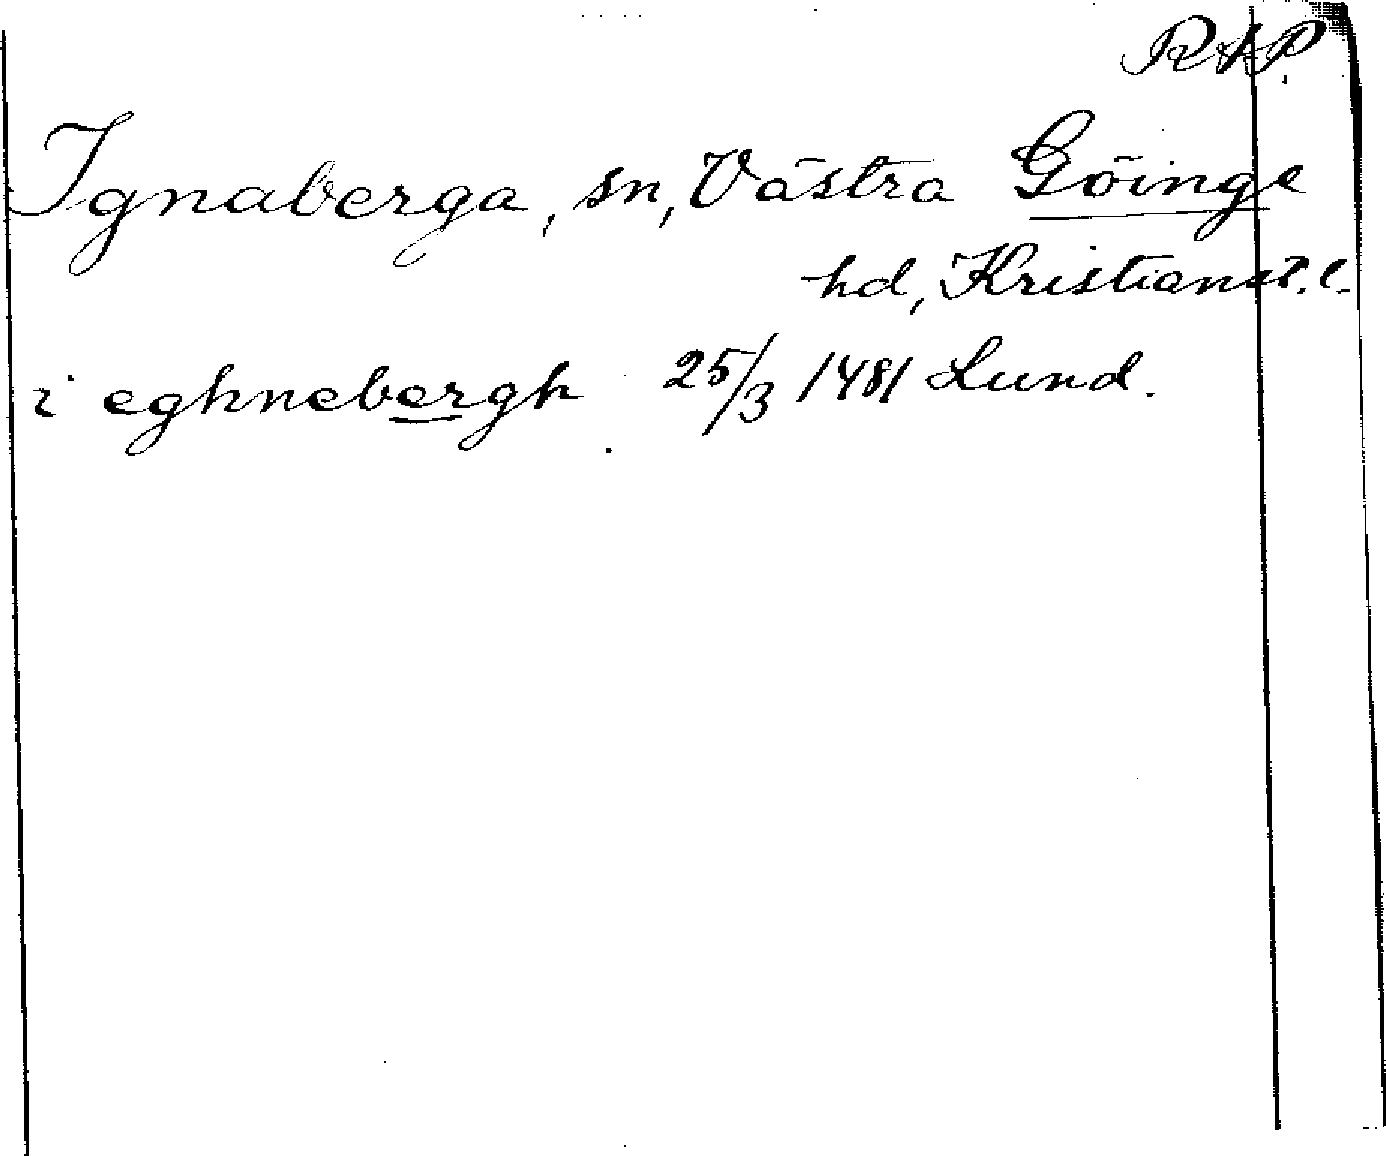 RAP.
Ignaberga, sn, Västra Göinge
hd, Kristianst. l.
i eghnebergh 25/3 1481 Lund.